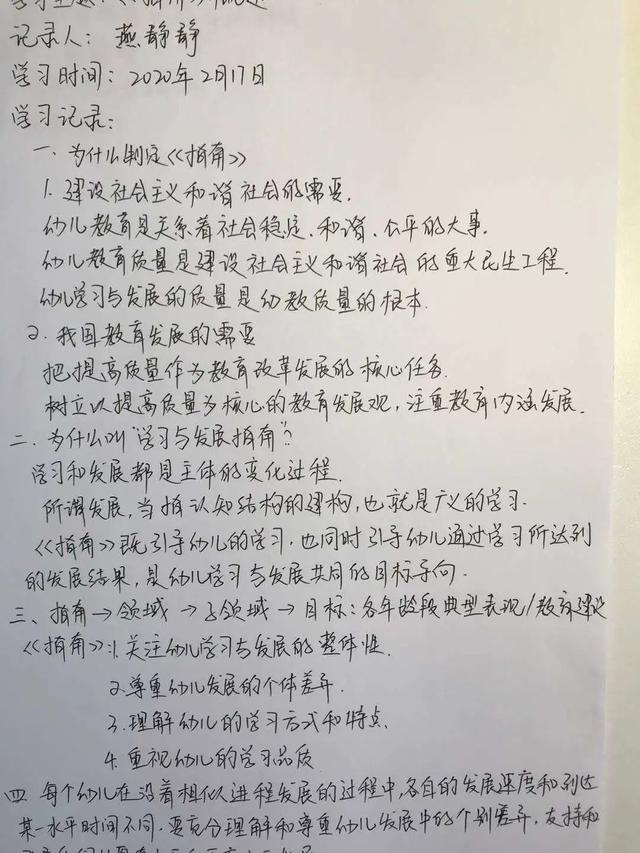 学习主题:《指南》概述
记录人: 燕静静
学习时间: 2020年2月17日
学习记录:
一. 为什么制定《指南》
1. 建设社会主义和谐社会的需要.
幼儿教育是关系着社会稳定、和谐、公平的大事.
幼儿教育质量是建设社会主义和谐社会的重大民生工程.
幼儿学习与发展的质量是幼教质量的根本.
2. 我国教育发展的需要
把提高质量作为教育改革发展的核心任务.
树立以提高质量为核心的教育发展观, 注重教育内涵发展.
二. 为什么叫“学习与发展指南”?
学习和发展都是主体的变化过程.
所谓发展, 当指认知结构的建构, 也就是广义的学习.
《指南》既引导幼儿的学习, 也同时引导幼儿通过学习所达到
的发展结果, 是幼儿学习与发展共同的目标导向.
三、指南→领域→子领域→目标: 各年龄段典型表现/教育建议
《指南》: 1. 关注幼儿学习与发展的整体性.
2. 尊重幼儿发展的个体差异.
3. 理解幼儿的学习方式和特点.
4. 重视幼儿的学习品质
四 每个幼儿在沿着相似进程发展的过程中, 各自的发展速度和到达
某一水平时间不同. 要充分理解和尊重幼儿发展中的个别差异, 支持和